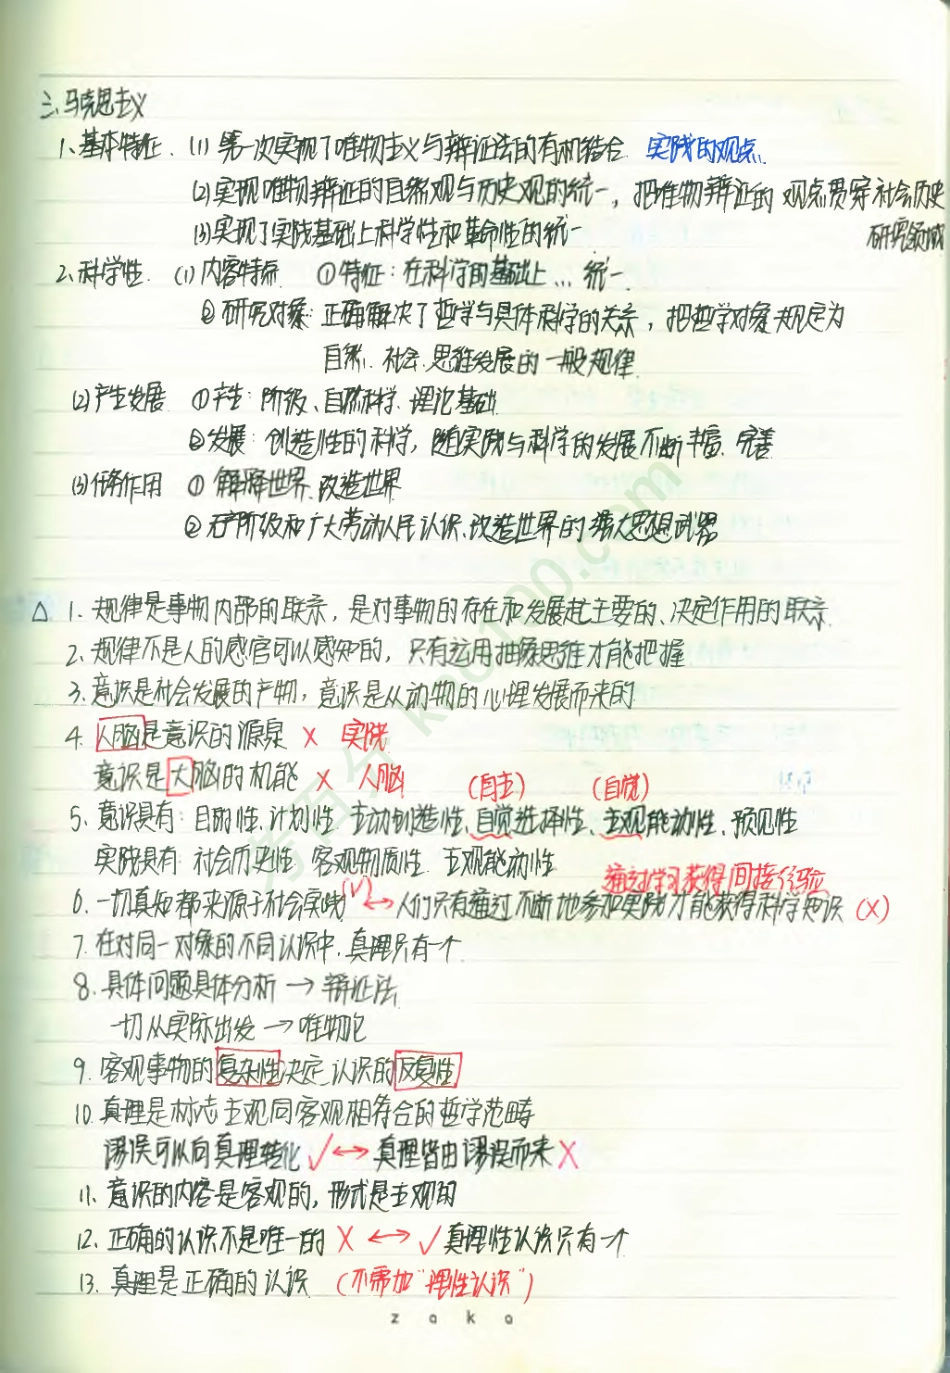 三、马克思主义
1、基本特征 (1) 第一次实现了唯物主义与辩证法的有机结合 实践的观点
(2)实现唯物辩证的自然观与历史观的统一，把唯物辩证的观点贯穿社会历史
研究领域
(3)实现了实践基础上科学性和革命性的统一
2、科学性 (1)内容特点 ①特征：在科学的基础上…统一
②研究对象：正确解决了哲学与具体科学的关系，把哲学对象规定为
自然、社会、思维发展的一般规律
(2)产生发展 ①产生：阶级、自然科学、理论基础
②发展：创造性的科学，随实践与科学的发展不断丰富、完善
(3)任务作用 ① 解释世界、改造世界
② 无产阶级和广大劳动人民认识、改造世界的强大思想武器
△ 1. 规律是事物内部的联系，是对事物的存在和发展起主要的、决定作用的联系
2. 规律不是人的感官可以感知的，只有运用抽象思维才能把握
3. 意识是社会发展的产物，意识是从动物的心理发展而来的
4. 人脑是意识的源泉 X 实践
意识是大脑的机能 X 人脑 (自主) (自觉)
5. 意识具有：目的性、计划性、主动创造性、自觉选择性、主观能动性、预见性
实践具有 社会历史性 客观物质性 主观能动性
通过学习获得间接经验
6. 一切真知都来源于社会实践(√)↔人们只有通过不断地参加实践才能获得科学知识 (X)
7. 在对同一对象的不同认识中，真理只有一个
8. 具体问题具体分析 → 辩证法
一切从实际出发 → 唯物论
9. 客观事物的复杂性决定认识的反复性
10. 真理是标志主观同客观相符合的哲学范畴
谬误可以向真理转化 √ ↔ 真理皆由谬误而来 X
11. 意识的内容是客观的，形式是主观的
12. 正确的认识不是唯一的 X ↔ √ 真理性认识只有一个
13. 真理是正确的认识 (不需加“理性认识”)
zaka
考百分 kao100.com